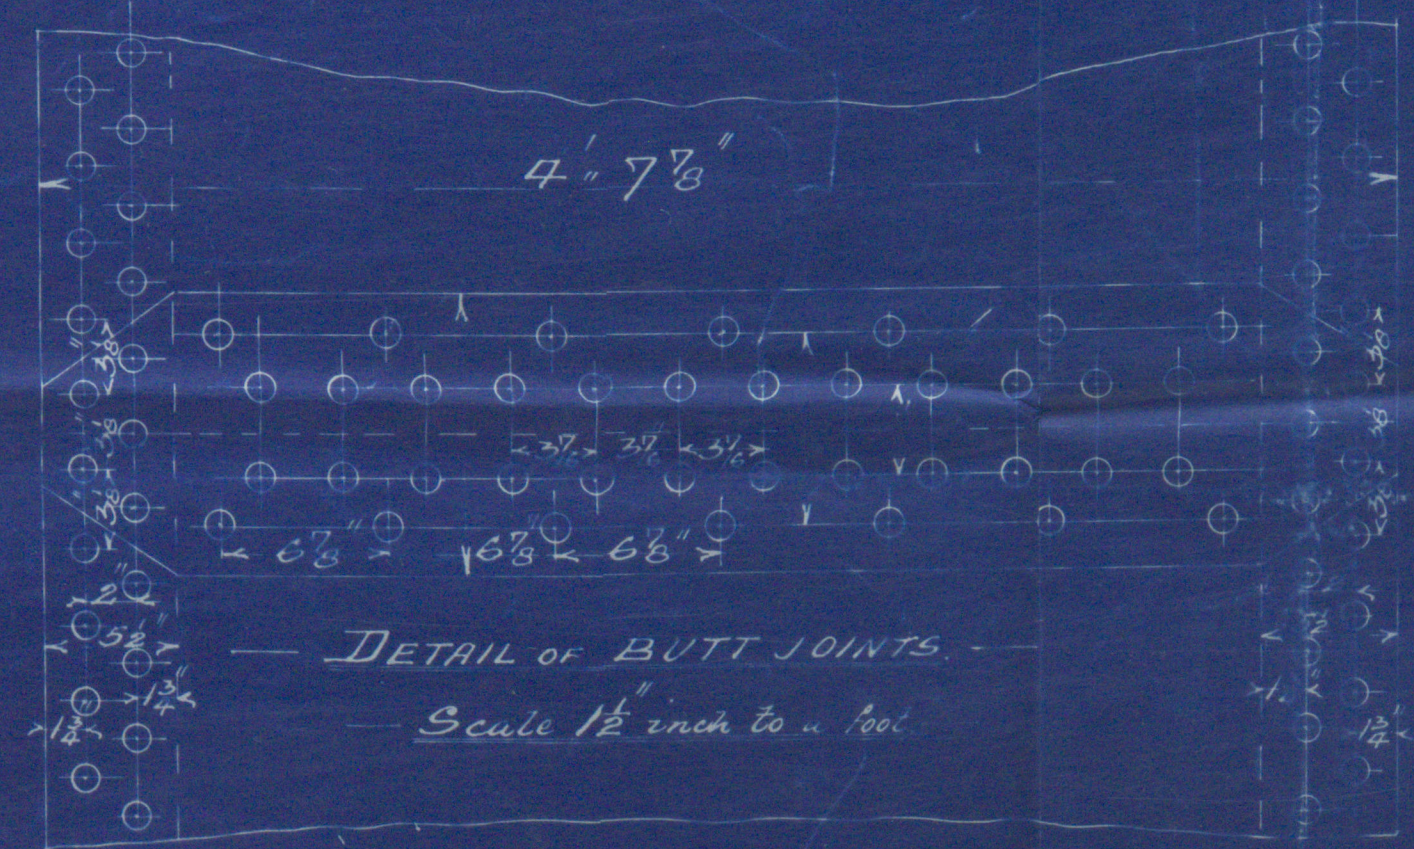 4' 7 7/8"
3 1/8"
3 1/8"
3 1/8"
3 1/8
3 1/8
3 7/16 3 7/16 3 7/16
6 7/8" 6 7/8 6 7/8"
2"
5 1/2"
1 3/4"
1 3/4"
1 3/4"
DETAIL OF BUTT JOINTS.
Scale 1 1/2" inch to a foot